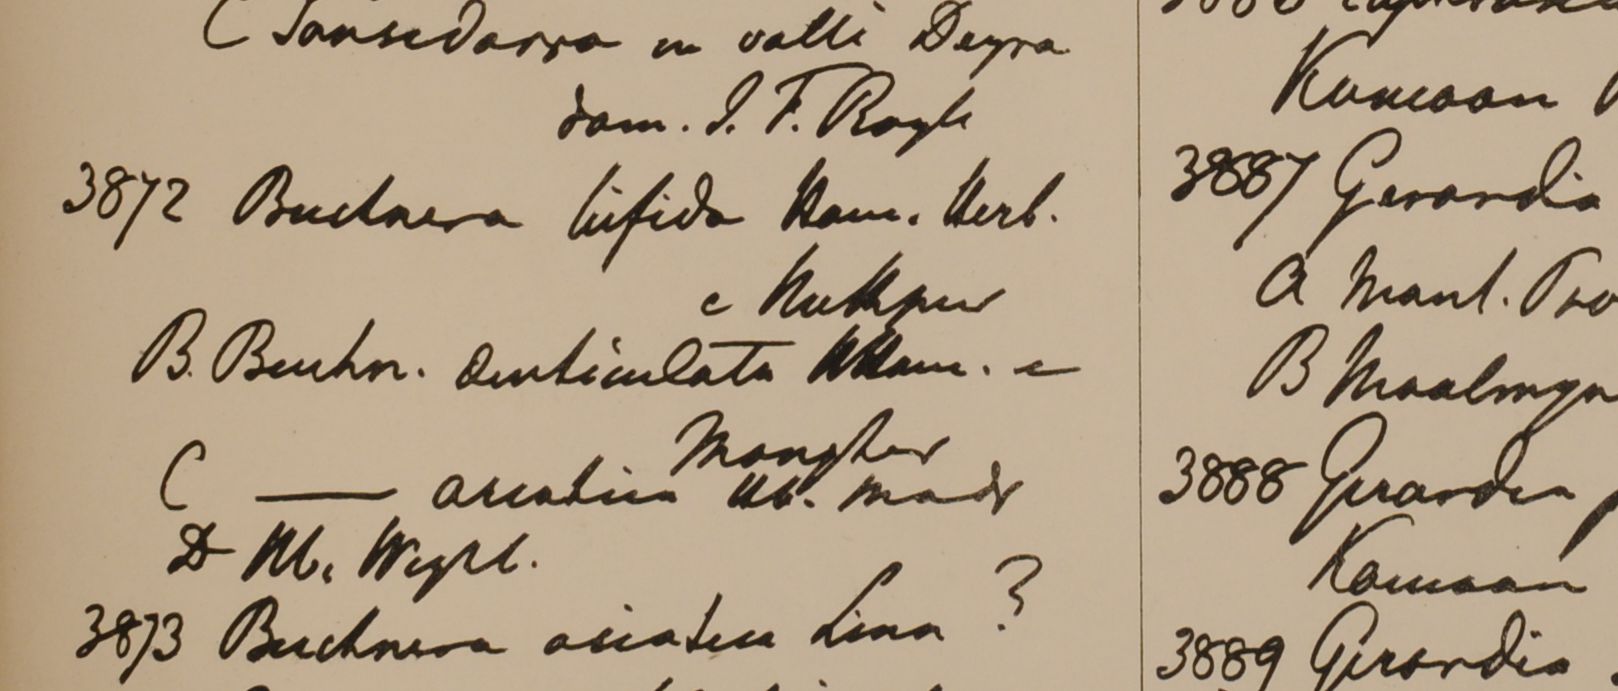 C Sansedarra in valli Deyra
dom. J. F. Royle
3872 Buchnera bifida Ham. Herb.
e
B. Buchn. denticulata Ham. e
Mongher
C — asiatica Hb. madr
D Hb. Wight.
3873 Buchnera asiatica Linn ?
Kumaon
3887 Gerardia
A Mont.
B
3888 Gerardia
Kamaon
3889 Gerardia